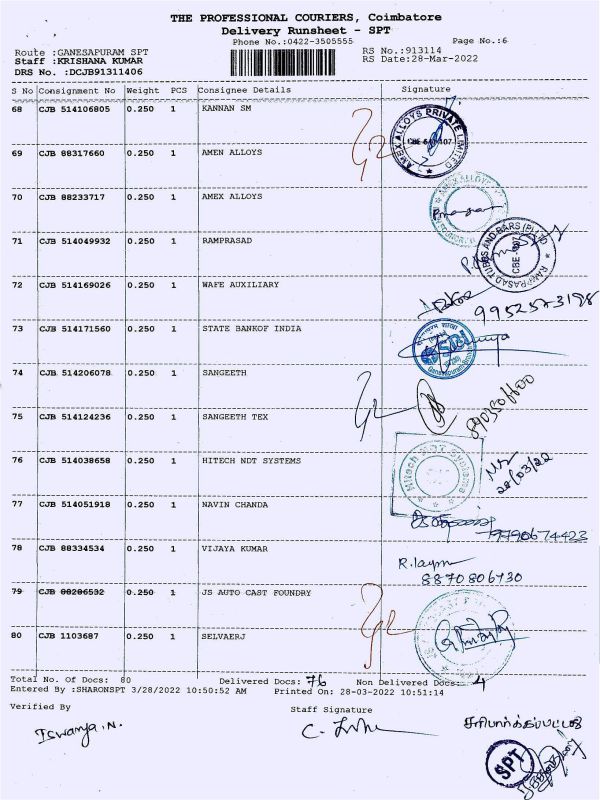 THE PROFESSIONAL COURIERS, Coimbatore
Delivery Runsheet - SPT
Phone No.:0422-3505555
Page No.:6
Route :GANESAPURAM SPT
RS No.:913114
Staff :KRISHANA KUMAR
RS Date:28-Mar-2022
DRS No. :DCJB91311406
S No Consignment No Weight PCS Consignee Details Signature
68 CJB 514106805 0.250 1 KANNAN SM
AMEX ALLOYS PRIVATE LIMITED
69 CJB 88317660 0.250 1 AMEN ALLOYS
70 CJB 88233717 0.250 1 AMEX ALLOYS
71 CJB 514049932 0.250 1 RAMPRASAD
RAMPRASAD TUBES AND BARS (P) LTD
72 CJB 514169026 0.250 1 WAFE AUXILIARY
9952573198
73 CJB 514171560 0.250 1 STATE BANKOF INDIA
74 CJB 514206078 0.250 1 SANGEETH
75 CJB 514124236 0.250 1 SANGEETH TEX
76 CJB 514038658 0.250 1 HITECH NDT SYSTEMS
Hitech NDT Systems
28/03/22
77 CJB 514051918 0.250 1 NAVIN CHANDA
9790674423
78 CJB 88334534 0.250 1 VIJAYA KUMAR
8870806730
79 CJB 88286532 0.250 1 JS AUTO CAST FOUNDRY
80 CJB 1103687 0.250 1 SELVAERJ
Total No. Of Docs: 80 Delivered Docs: 76 Non Delivered Docs: 4
Entered By :SHARONSPT 3/28/2022 10:50:52 AM Printed On: 28-03-2022 10:51:14
Verified By Staff Signature
Iswarya.N.
SPT